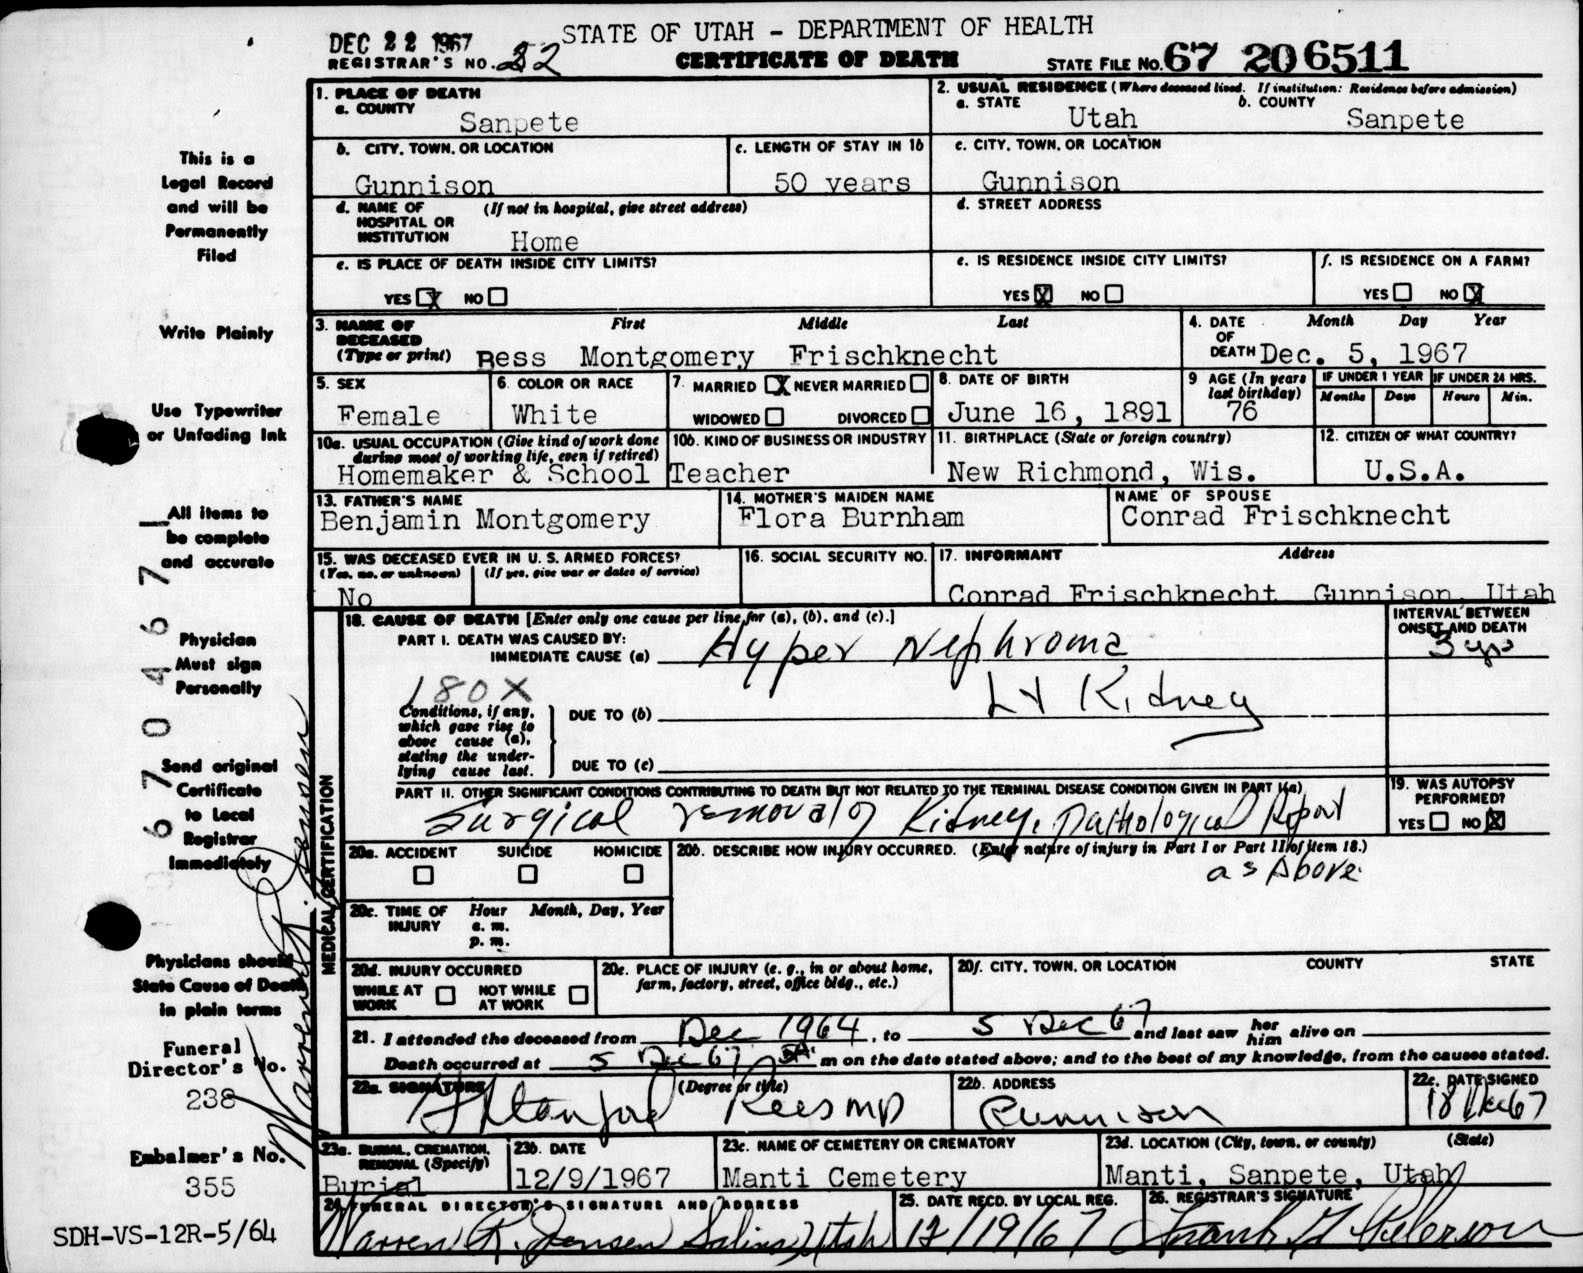 DEC 22 1967
STATE OF UTAH - DEPARTMENT OF HEALTH
REGISTRAR'S NO. 22
CERTIFICATE OF DEATH
STATE FILE NO. 67 206511
1. PLACE OF DEATH
a. COUNTY
Sanpete
2. USUAL RESIDENCE (Where deceased lived. If institution: Residence before admission)
a. STATE
Utah
b. COUNTY
Sanpete
b. CITY, TOWN, OR LOCATION
Gunnison
c. LENGTH OF STAY IN 1b
50 years
c. CITY, TOWN, OR LOCATION
Gunnison
d. NAME OF HOSPITAL OR INSTITUTION
(If not in hospital, give street address)
Home
d. STREET ADDRESS
e. IS PLACE OF DEATH INSIDE CITY LIMITS?
YES X NO
e. IS RESIDENCE INSIDE CITY LIMITS?
YES X NO
f. IS RESIDENCE ON A FARM?
YES NO X
3. NAME OF DECEASED
(Type or print)
First Middle Last
Bess Montgomery Frischknecht
4. DATE OF DEATH
Month Day Year
Dec. 5, 1967
5. SEX
Female
6. COLOR OR RACE
White
7. MARRIED X NEVER MARRIED
WIDOWED DIVORCED
8. DATE OF BIRTH
June 16, 1891
9 AGE (In years last birthday)
76
IF UNDER 1 YEAR
Months Days
IF UNDER 24 HRS.
Hours Min.
10a. USUAL OCCUPATION (Give kind of work done during most of working life, even if retired)
Homemaker & School
10b. KIND OF BUSINESS OR INDUSTRY
Teacher
11. BIRTHPLACE (State or foreign country)
New Richmond, Wis.
12. CITIZEN OF WHAT COUNTRY?
U.S.A.
13. FATHER'S NAME
Benjamin Montgomery
14. MOTHER'S MAIDEN NAME
Flora Burnham
NAME OF SPOUSE
Conrad Frischknecht
15. WAS DECEASED EVER IN U. S. ARMED FORCES?
(Yes, no, or unknown) (If yes, give war or dates of service)
No
16. SOCIAL SECURITY NO.
17. INFORMANT Address
Conrad Frischknecht Gunnison, Utah
MEDICAL CERTIFICATION
18. CAUSE OF DEATH [Enter only one cause per line for (a), (b), and (c).]
PART I. DEATH WAS CAUSED BY:
IMMEDIATE CAUSE (a) Hyper Nephroma
INTERVAL BETWEEN ONSET AND DEATH
3 yrs
180X
Conditions, if any, which gave rise to above cause (a), stating the underlying cause last.
DUE TO (b) Lt Kidney
DUE TO (c)
PART II. OTHER SIGNIFICANT CONDITIONS CONTRIBUTING TO DEATH BUT NOT RELATED TO THE TERMINAL DISEASE CONDITION GIVEN IN PART I(a)
Surgical removal of Kidney, Pathological Report
as Above
19. WAS AUTOPSY PERFORMED?
YES NO X
20a. ACCIDENT SUICIDE HOMICIDE
20b. DESCRIBE HOW INJURY OCCURRED. (Enter nature of injury in Part I or Part II of item 18.)
20c. TIME OF INJURY
Hour Month, Day, Year
a. m.
p. m.
20d. INJURY OCCURRED
WHILE AT WORK NOT WHILE AT WORK
20e. PLACE OF INJURY (e. g., in or about home, farm, factory, street, office bldg., etc.)
20f. CITY, TOWN, OR LOCATION COUNTY STATE
21. I attended the deceased from Dec 1964, to 5 Dec 67 and last saw her him alive on
Death occurred at 5 Dec 67 5A m on the date stated above; and to the best of my knowledge, from the causes stated.
22a. SIGNATURE (Degree or title)
Stanford Rees MD
22b. ADDRESS
Gunnison
22c. DATE SIGNED
18 Dec 67
23a. BURIAL, CREMATION, REMOVAL (Specify)
Burial
23b. DATE
12/9/1967
23c. NAME OF CEMETERY OR CREMATORY
Manti Cemetery
23d. LOCATION (City, town, or county) (State)
Manti, Sanpete, Utah
24. FUNERAL DIRECTOR'S SIGNATURE AND ADDRESS
Warren R. Jensen Salina, Utah
25. DATE RECD. BY LOCAL REG.
12/19/67
26. REGISTRAR'S SIGNATURE
Frank G Peterson
This is a
Legal Record
and will be
Permanently
Filed
Write Plainly
Use Typewriter
or Unfading Ink
All items to
be complete
and accurate
Physician
Must sign
Personally
Send original
Certificate
to Local
Registrar
Immediately
Physicians should
State Cause of Death
in plain terms
Funeral
Director's No.
238
Embalmer's No.
355
SDH-VS-12R-5/64
670467
Warren R. Jensen